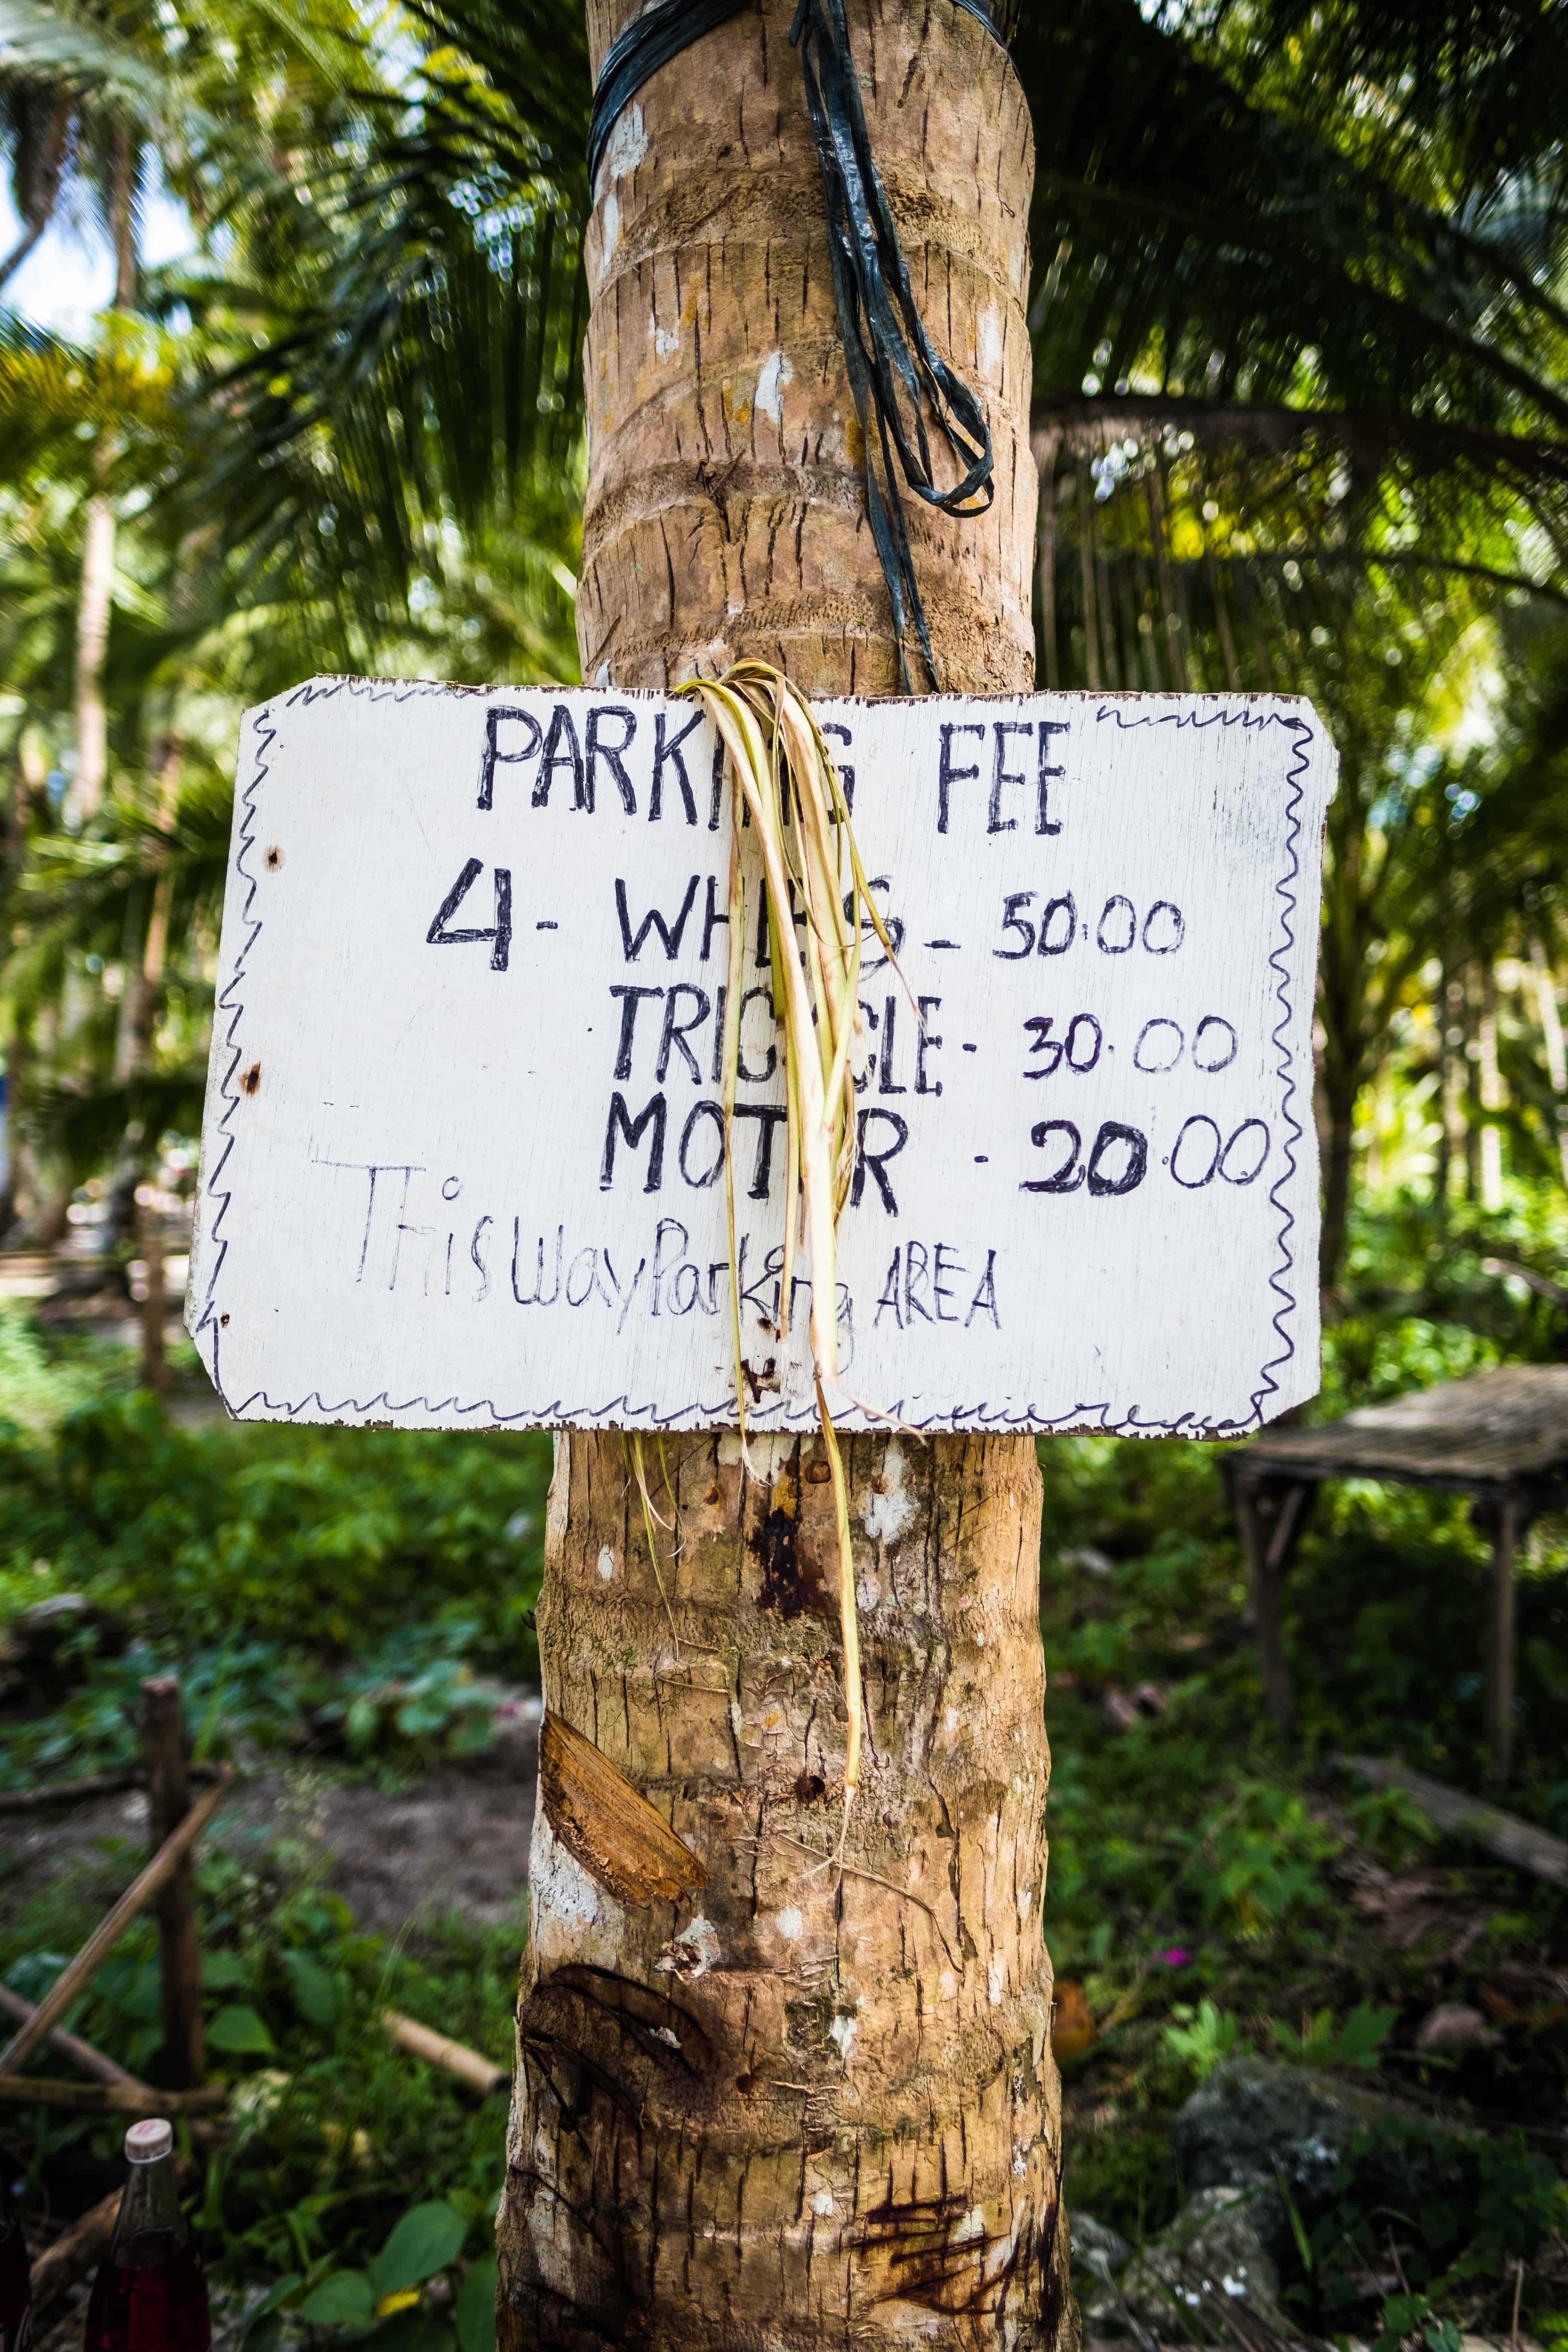 PARKING FEE
4- WHLS - 50.00
TRICYCLE - 30.00
MOTOR - 20.00
THis Way Parking AREA